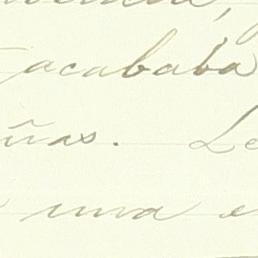 acababa
ñas. Le
una e